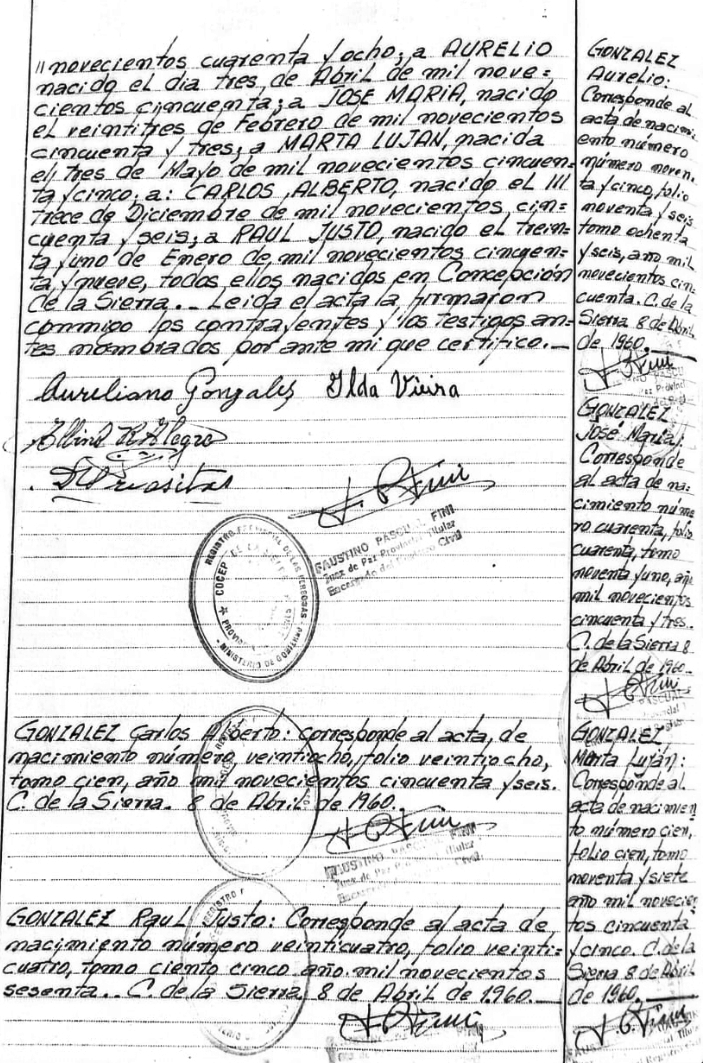 // novecientos cuarenta y ocho; a AURELIO
nacido el dia tres de Abril de mil nove=
cientos cincuenta; a JOSE MARIA, nacido
el veintitres de Febrero de mil novecientos
cincuenta y tres; a MARTA LUJAN, nacida
el tres de Mayo de mil novecientos cincuen=
ta y cinco, a: CARLOS ALBERTO, nacido el ///
trece de Diciembre de mil novecientos, cin=
cuenta y seis; a RAUL JUSTO, nacido el trein=
ta y uno de Enero de mil novecientos cincuen=
ta y nueve, todos ellos nacidos en Concepción
de la Sierra._ Leida el acta la firmaron
conmigo los contrayentes y los testigos an=
tes nombrados por ante mi que certifico._
Aureliano Gonzales Ilda Vieira
FAUSTINO PASCUAL FINI
Juez de Paz Provincial Titular
Encargado del Registro Civil
REGISTRO PROVINCIAL DE LAS PERSONAS
MINISTERIO DE GOBIERNO
GONZALEZ Carlos Alberto: corresponde al acta, de
nacimiento número, veintiocho, folio veintiocho,
tomo cien, año mil novecientos cincuenta y seis.
C. de la Sierra. 8 de Abril de 1960.
GONZALEZ Raul Justo: Corresponde al acta de
nacimiento número veinticuatro, folio veinti=
cuatro, tomo ciento cinco año. mil novecientos
sesenta.. C. de la Sierra, 8 de Abril de 1960._
GONZALEZ
Aurelio:
Corresponde al
acta de nacimi=
ento número
número noven=
ta y cinco, folio
noventa y seis
tomo ochenta
y seis, año mil
novecientos cin=
cuenta. C. de la
Sierra 8 de Abril
de 1960._
GONZALEZ
José María:
Corresponde
al acta de na=
cimiento núme
ro cuarenta, folio
cuarenta, tomo
noventa y uno, año
mil novecientos
cincuenta y tres.
C. de la Sierra 8
de Abril de 1960._
GONZALEZ
Marta Luján:
Corresponde al
acta de nacimien
to número cien,
folio cien, tomo
noventa y siete
año mil novecien
tos cincuenta
y cinco. C. de la
Sierra 8 de Abril
de 1960._